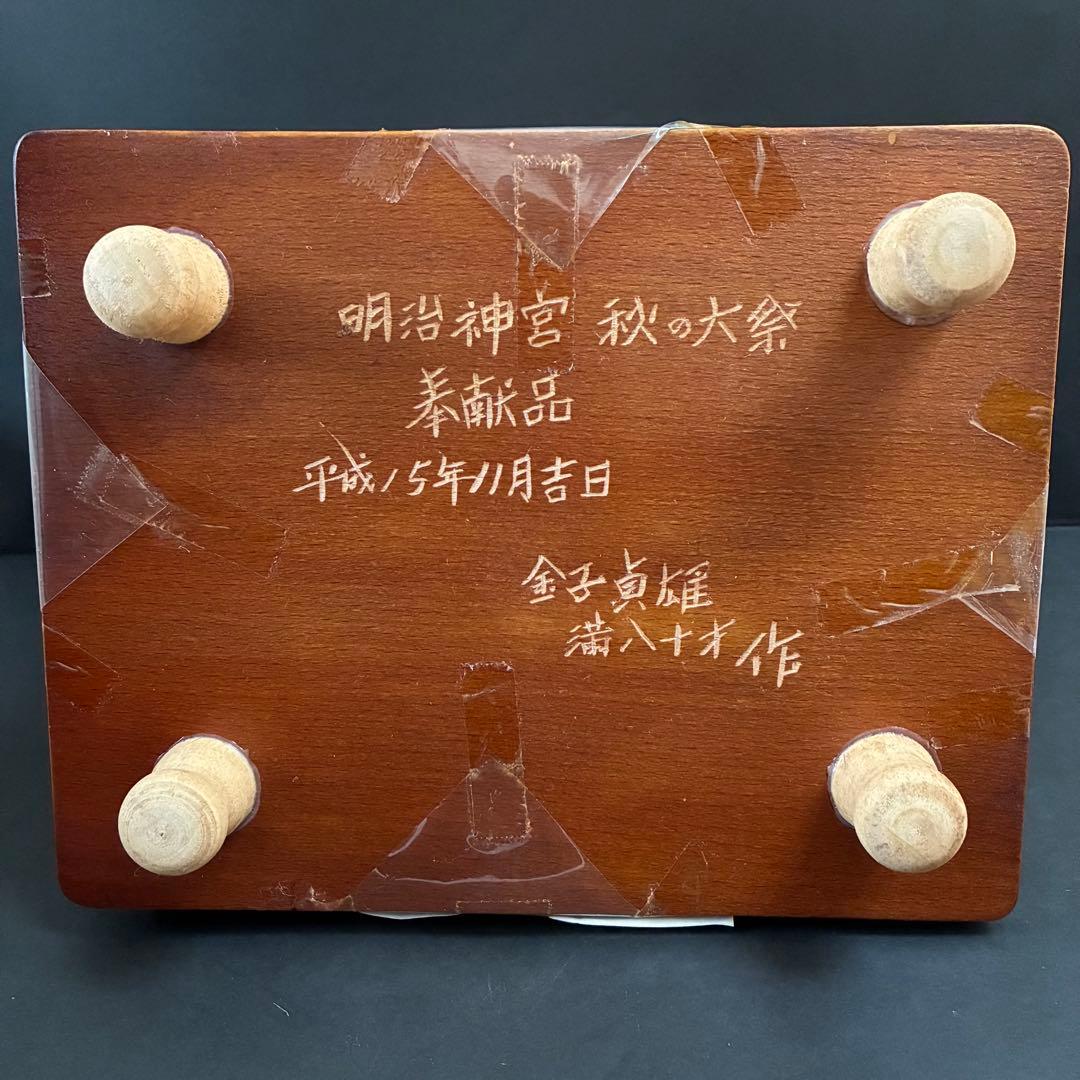 明治神宮 秋の大祭
奉献品
平成15年11月吉日
金子貞雄
満八十才 作